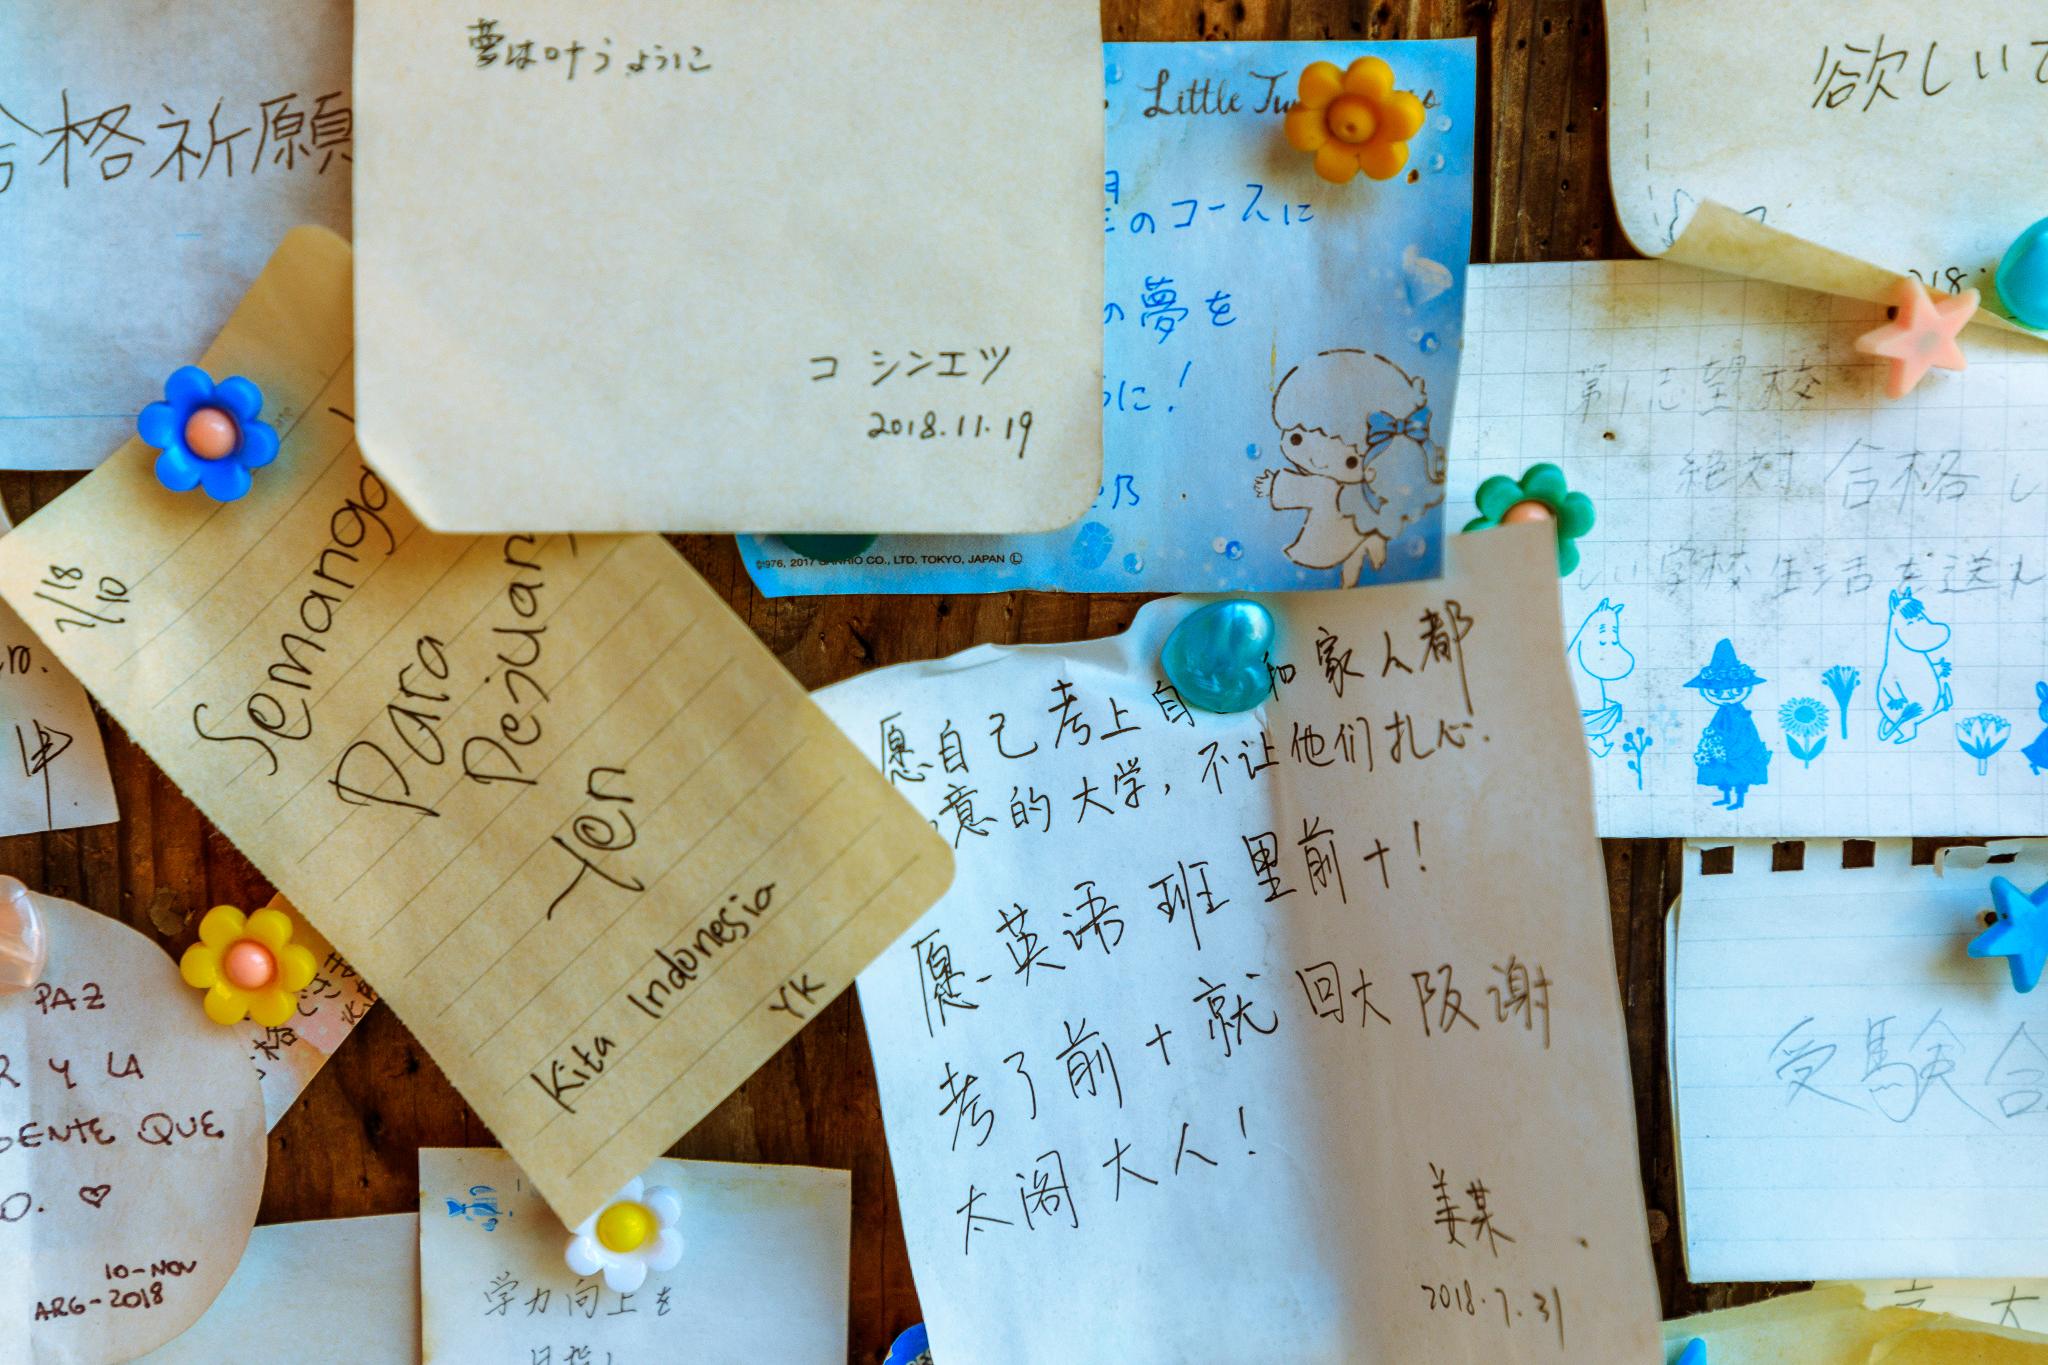 合格祈願
夢は叶うように
コ シンエツ
2018.11.19
Little Tw
のコースに
の夢を
に!
乃
©1976, 2017 SANRIO CO., LTD. TOKYO, JAPAN Ⓛ
欲しいで
18.
第1志望校
絶対 合格し
しい学校生活を送れ
7/18
/10
Semanga
Para
Pejuan
Yen
Kita Indonesia
YK
愿自己考上自 和家人都
意的大学,不让他们扎心.
愿英语班里前十!
考了前十就回大阪谢
太阁大人!
姜某
2018.7.31
PAZ
R Y LA
GENTE QUE
O. ♡
10-NOV
ARG-2018
格
学力向上を
目指し
受験合
大